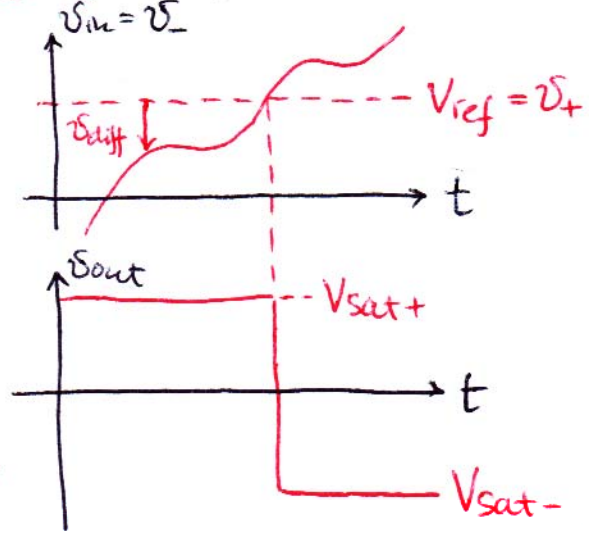 v_in = v_-
V_ref = v_+
v_diff
t
v_out
V_sat+
t
V_sat-